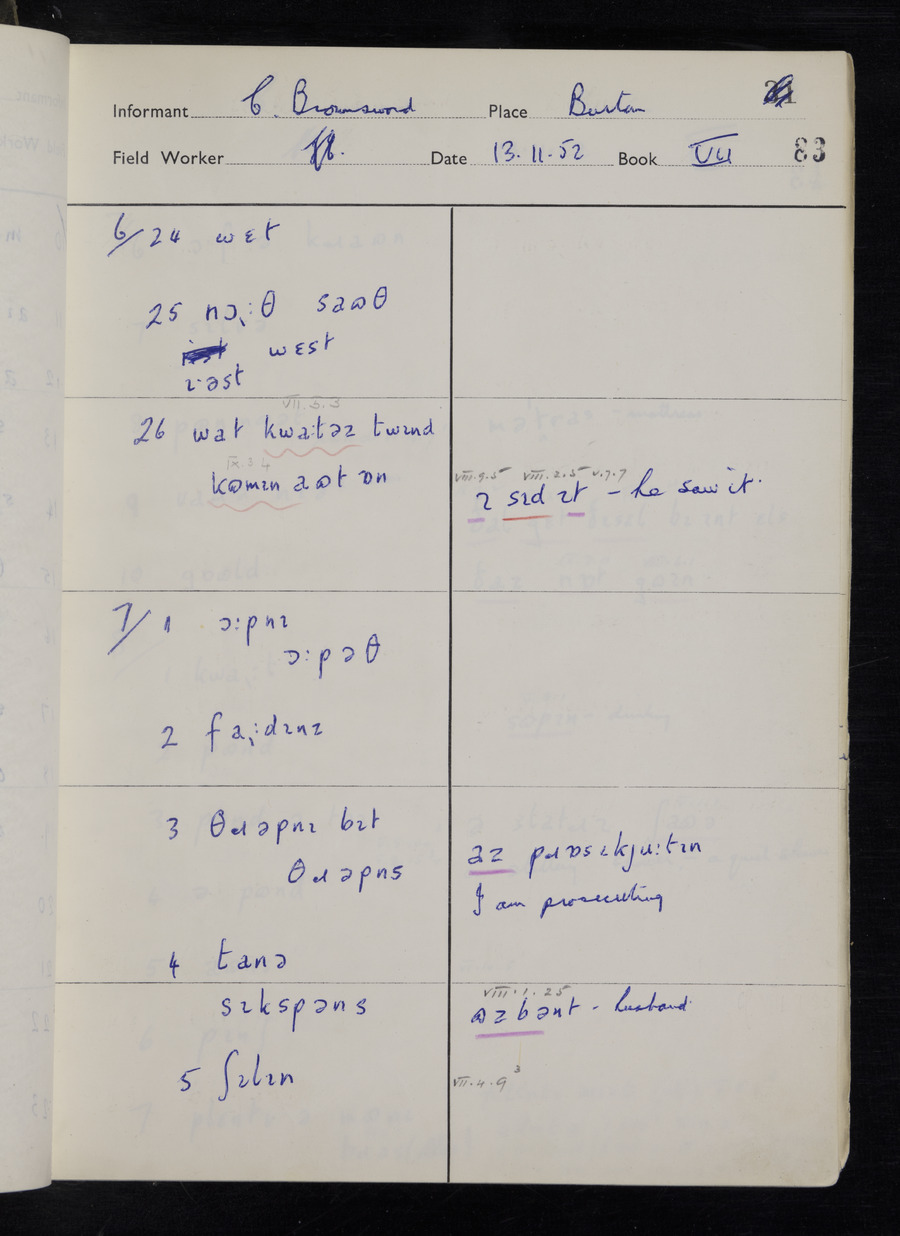 Informant C. Brownsword Place Burton
Field Worker Date 13.11.52 Book VII 83
6/24 wɛt
25 nɔ̨ːθ saɷθ
wɛst
ɪəst
VII.5.3
26 wat kwaːtəɪ twɪnd
IX.3.4
kɷmɪn aɷt ɒn
VIII.9.5 VIII.2.5 V.7.7
ɪ sɪd ɪt – he saw it.
7/1 ɔːpnɪ
ɔːpəθ
2 fąːdɪnz
3 θɹəpnɪ bɪt
θɹəpns
az pɹɒsɪkjuːtɪn
I am prosecuting
4 tanə
sɪkspəns
VIII.1.25
ɷzbənt – husband
5 ʃɪlɪn
VII.4.9 3